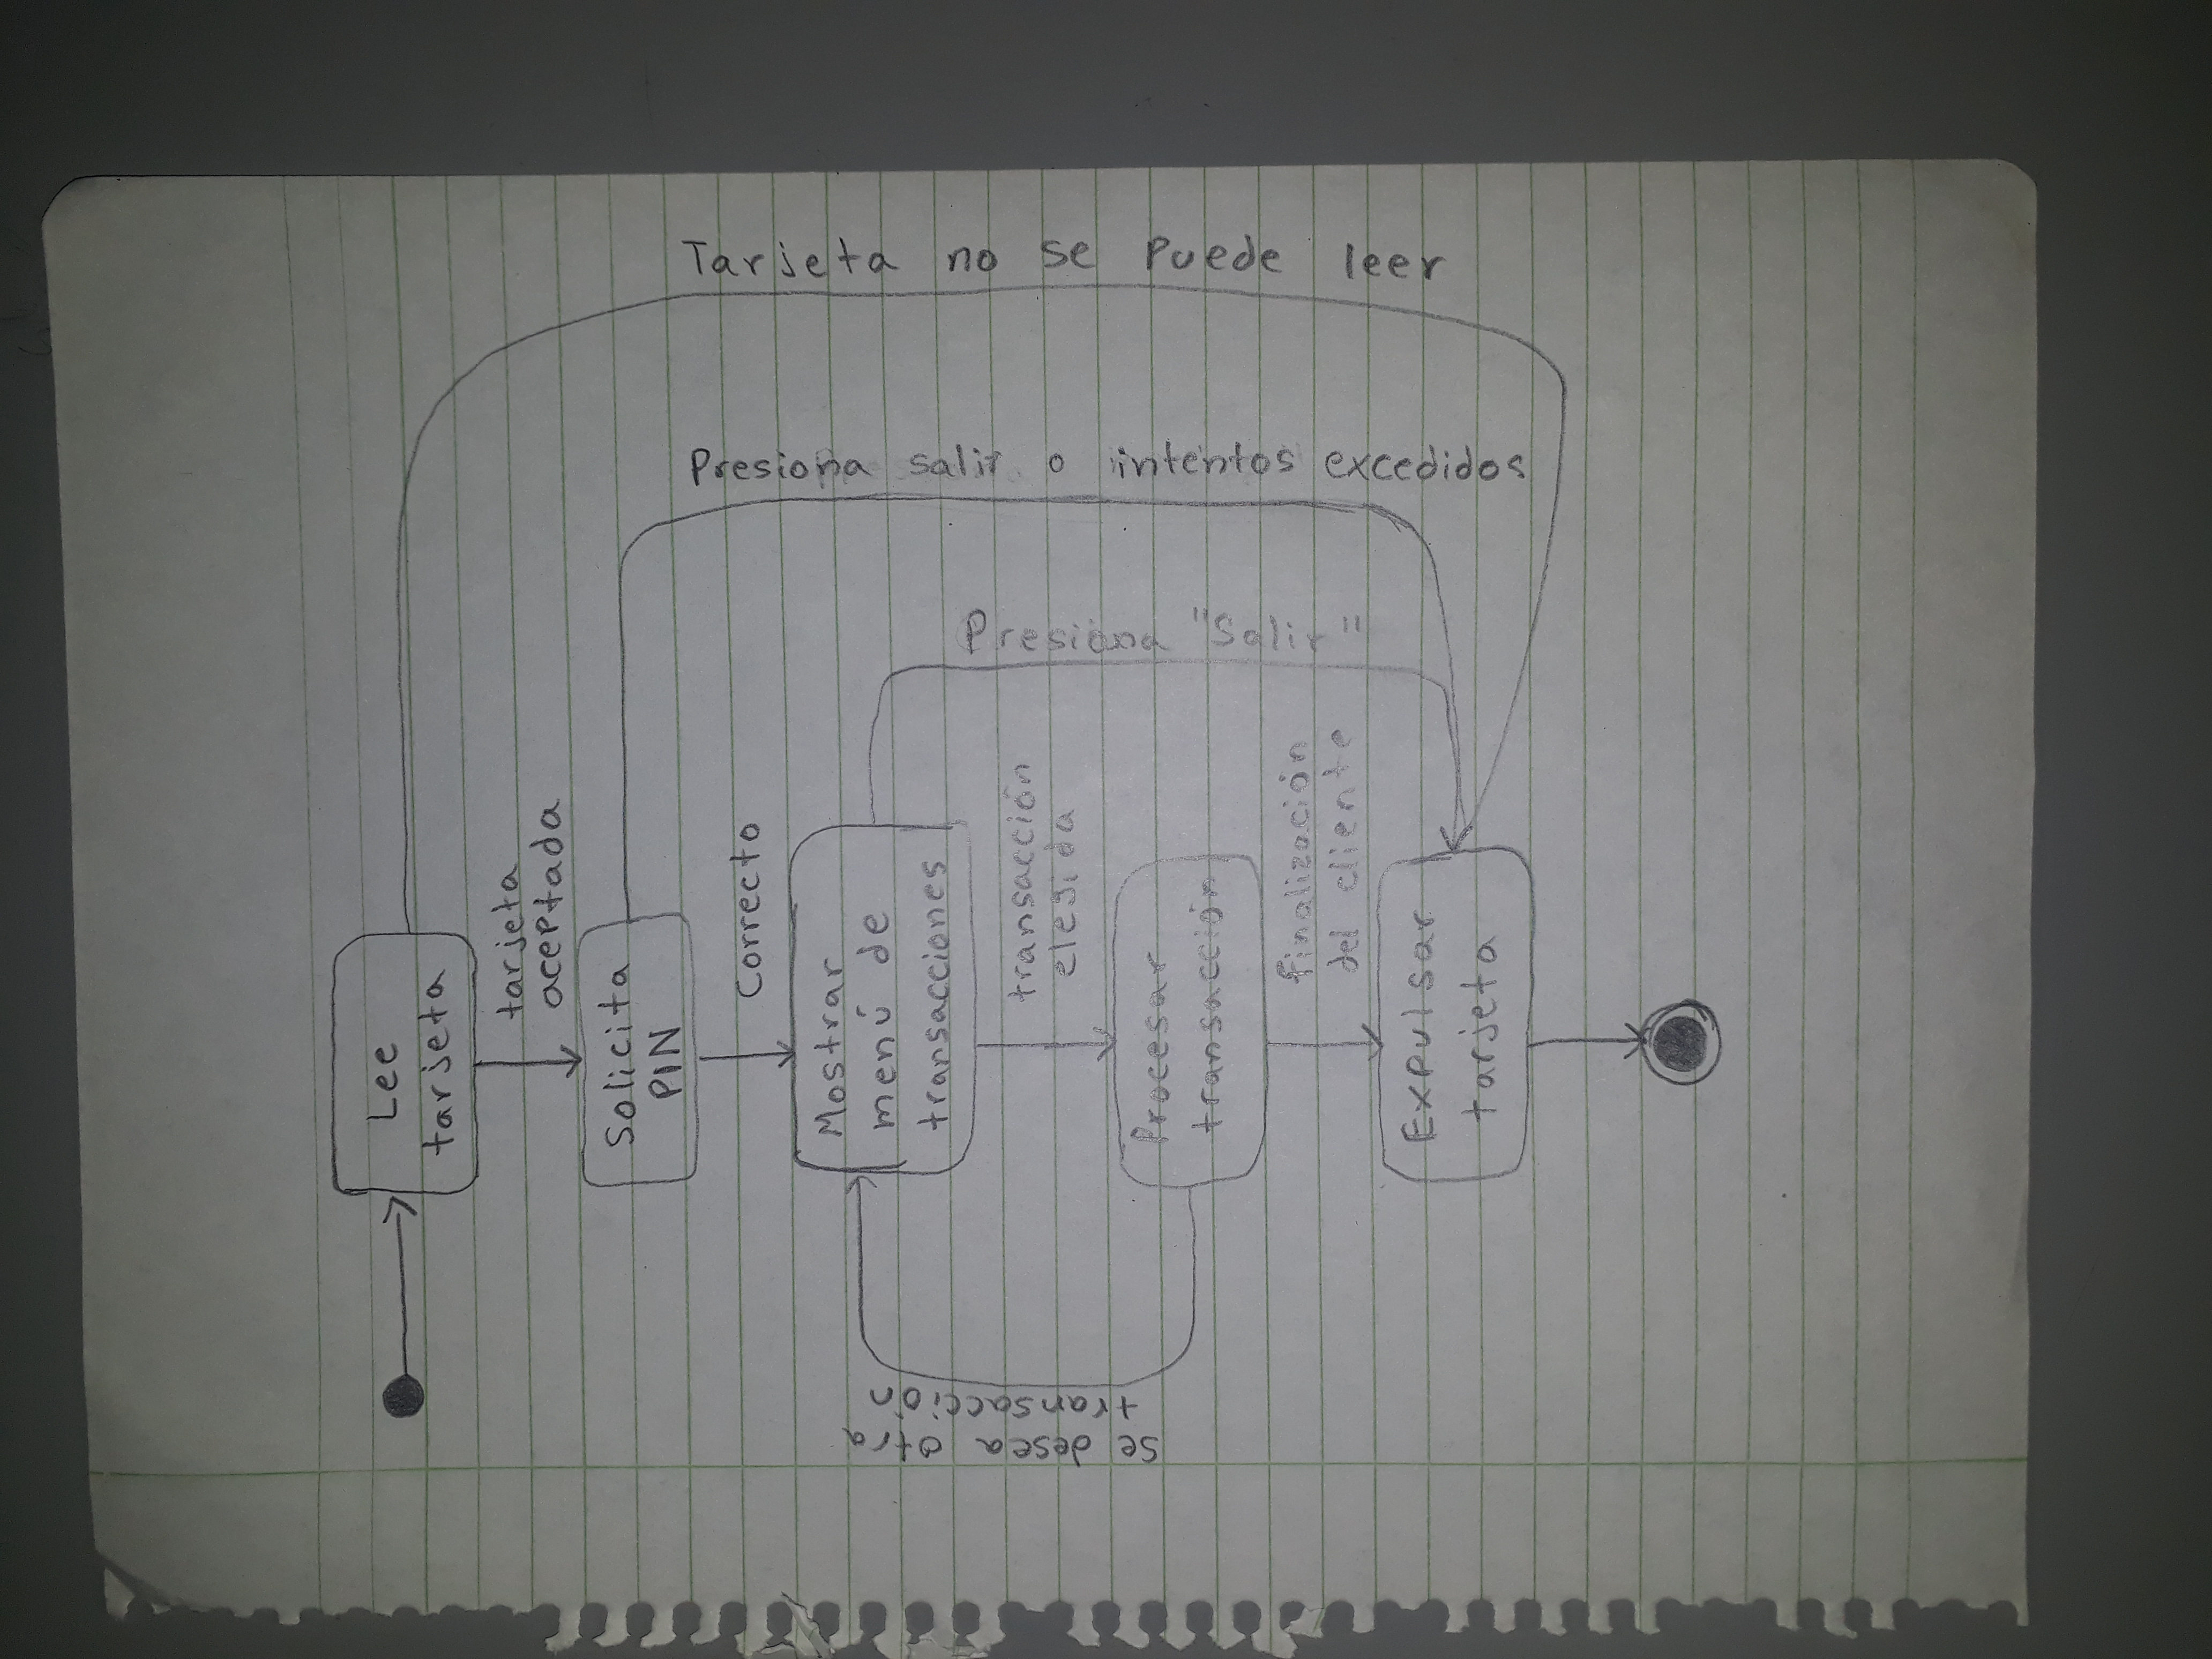 Lee
tarjeta
tarjeta
aceptada
Solicita
PIN
Correcto
Mostrar
menú de
transacciones
Se desea otra
transacción
transacción
elegida
Procesar
transacción
finalización
del cliente
Expulsar
tarjeta
Presiona "Salir"
Presiona salir o intentos excedidos
Tarjeta no se puede leer